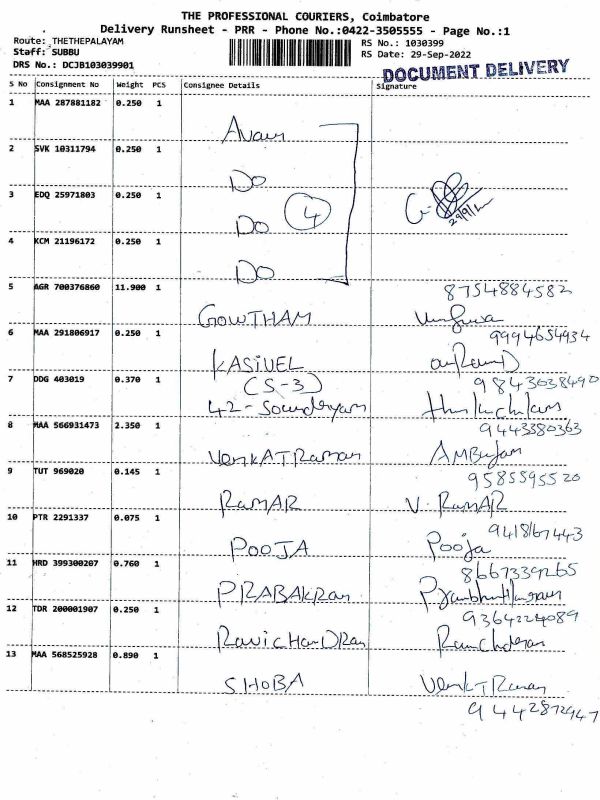 THE PROFESSIONAL COURIERS, Coimbatore
Delivery Runsheet - PRR - Phone No.:0422-3505555 - Page No.:1
Route: THETHEPALAYAM RS No.: 1030399
Staff: SUBBU RS Date: 29-Sep-2022
DRS No.: DCJB103039901
DOCUMENT DELIVERY
S No Consignment No Weight PCS Consignee Details Signature
1 MAA 287881182 0.250 1
2 SVK 10311794 0.250 1
Do
3 EDQ 25971803 0.250 1
Do 4
4 KCM 21196172 0.250 1
Do
5 AGR 700376860 11.900 1 8754884582
GOWTHAM
6 MAA 291806917 0.250 1 9994654934
KASIVEL
(S-3)
7 DDG 403019 0.370 1 9843038490
42-
8 MAA 566931473 2.350 1 9443380363
VENKATRaman AMBujam
9 TUT 969020 0.145 1 9585595520
RAMAR V. RAMAR
10 PTR 2291337 0.075 1
POOJA Pooja
11 HRD 399300207 0.760 1 8667339265
PRABAKRan
12 TDR 200001907 0.250 1 9364224089
RawichanDRan
13 MAA 568525928 0.890 1
SHOBA
9442872947